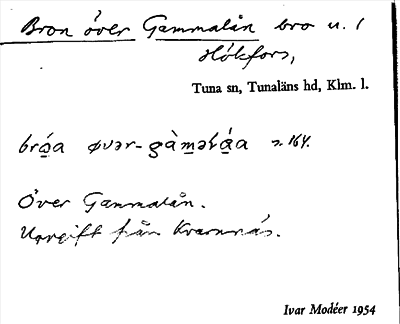 Bron över Gammalån bro u. 1
Hökfors,
Tuna sn, Tunaläns hd, Klm. l.
bró̱a øvər-gàm̱əlá̱a s. 164.
Över Gammalån.
Uppgift från Kvarnnäs.
Ivar Modéer 1954